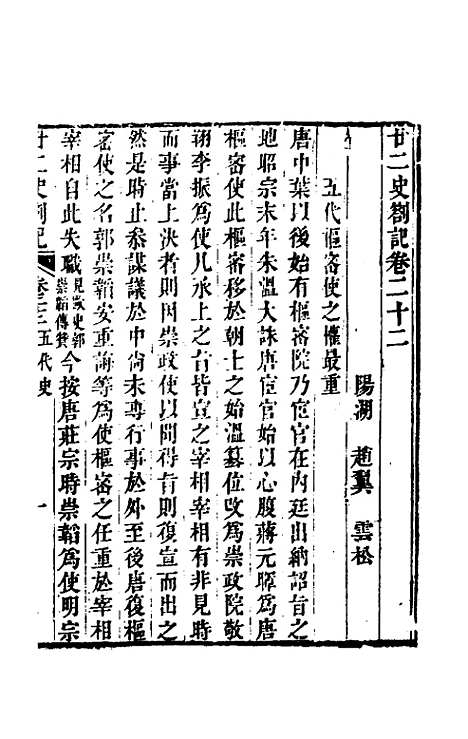 廿二史劄記卷二十二
陽湖 趙翼 雲松
五代樞密使之權最重
唐中葉以後始有樞密院乃宦官在內廷出納詔旨之
地昭宗末年朱溫大誅唐宦官始以心腹蔣元暉為唐
樞密使此樞密移於朝士之始溫篡位改為崇政院敬
翊李振為使凡承上之旨皆宣之宰相宰相有非見時
而事當上決者則因崇政使以聞得旨則復宣而出之
然是時止參謀議於中尚未專行事於外至後唐復樞
密使之名郭崇韜安重誨等為使樞密之任重於宰相
宰相自此失職見歐史郭崇韜傳贊今按唐莊宗時崇韜為使明宗
廿二史劄記 卷二十二 五代史 一